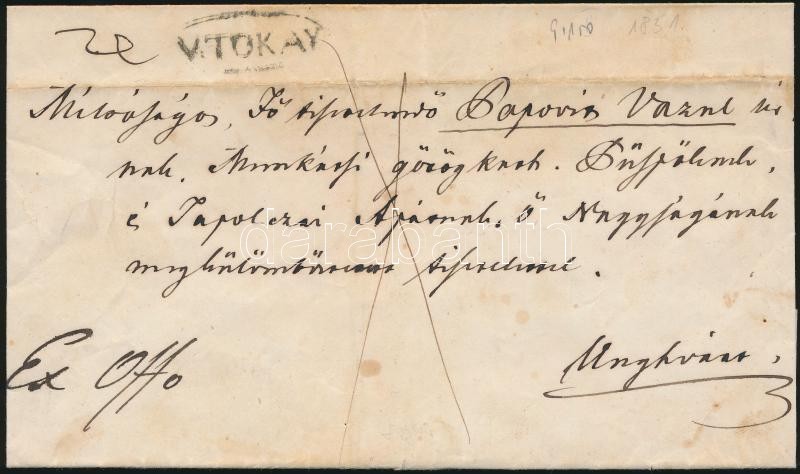 V:TOKAY
1851.
Méltóságos, Fő tisztelendő Papovics Vazul úr
nak, Munkácsi görögkath. Püspöknek,
é Tapolczai Apátnak, ő Nagyságának
megkülömböztetett tisztelettel.
darabanth
Ex Offo
Unghváro.